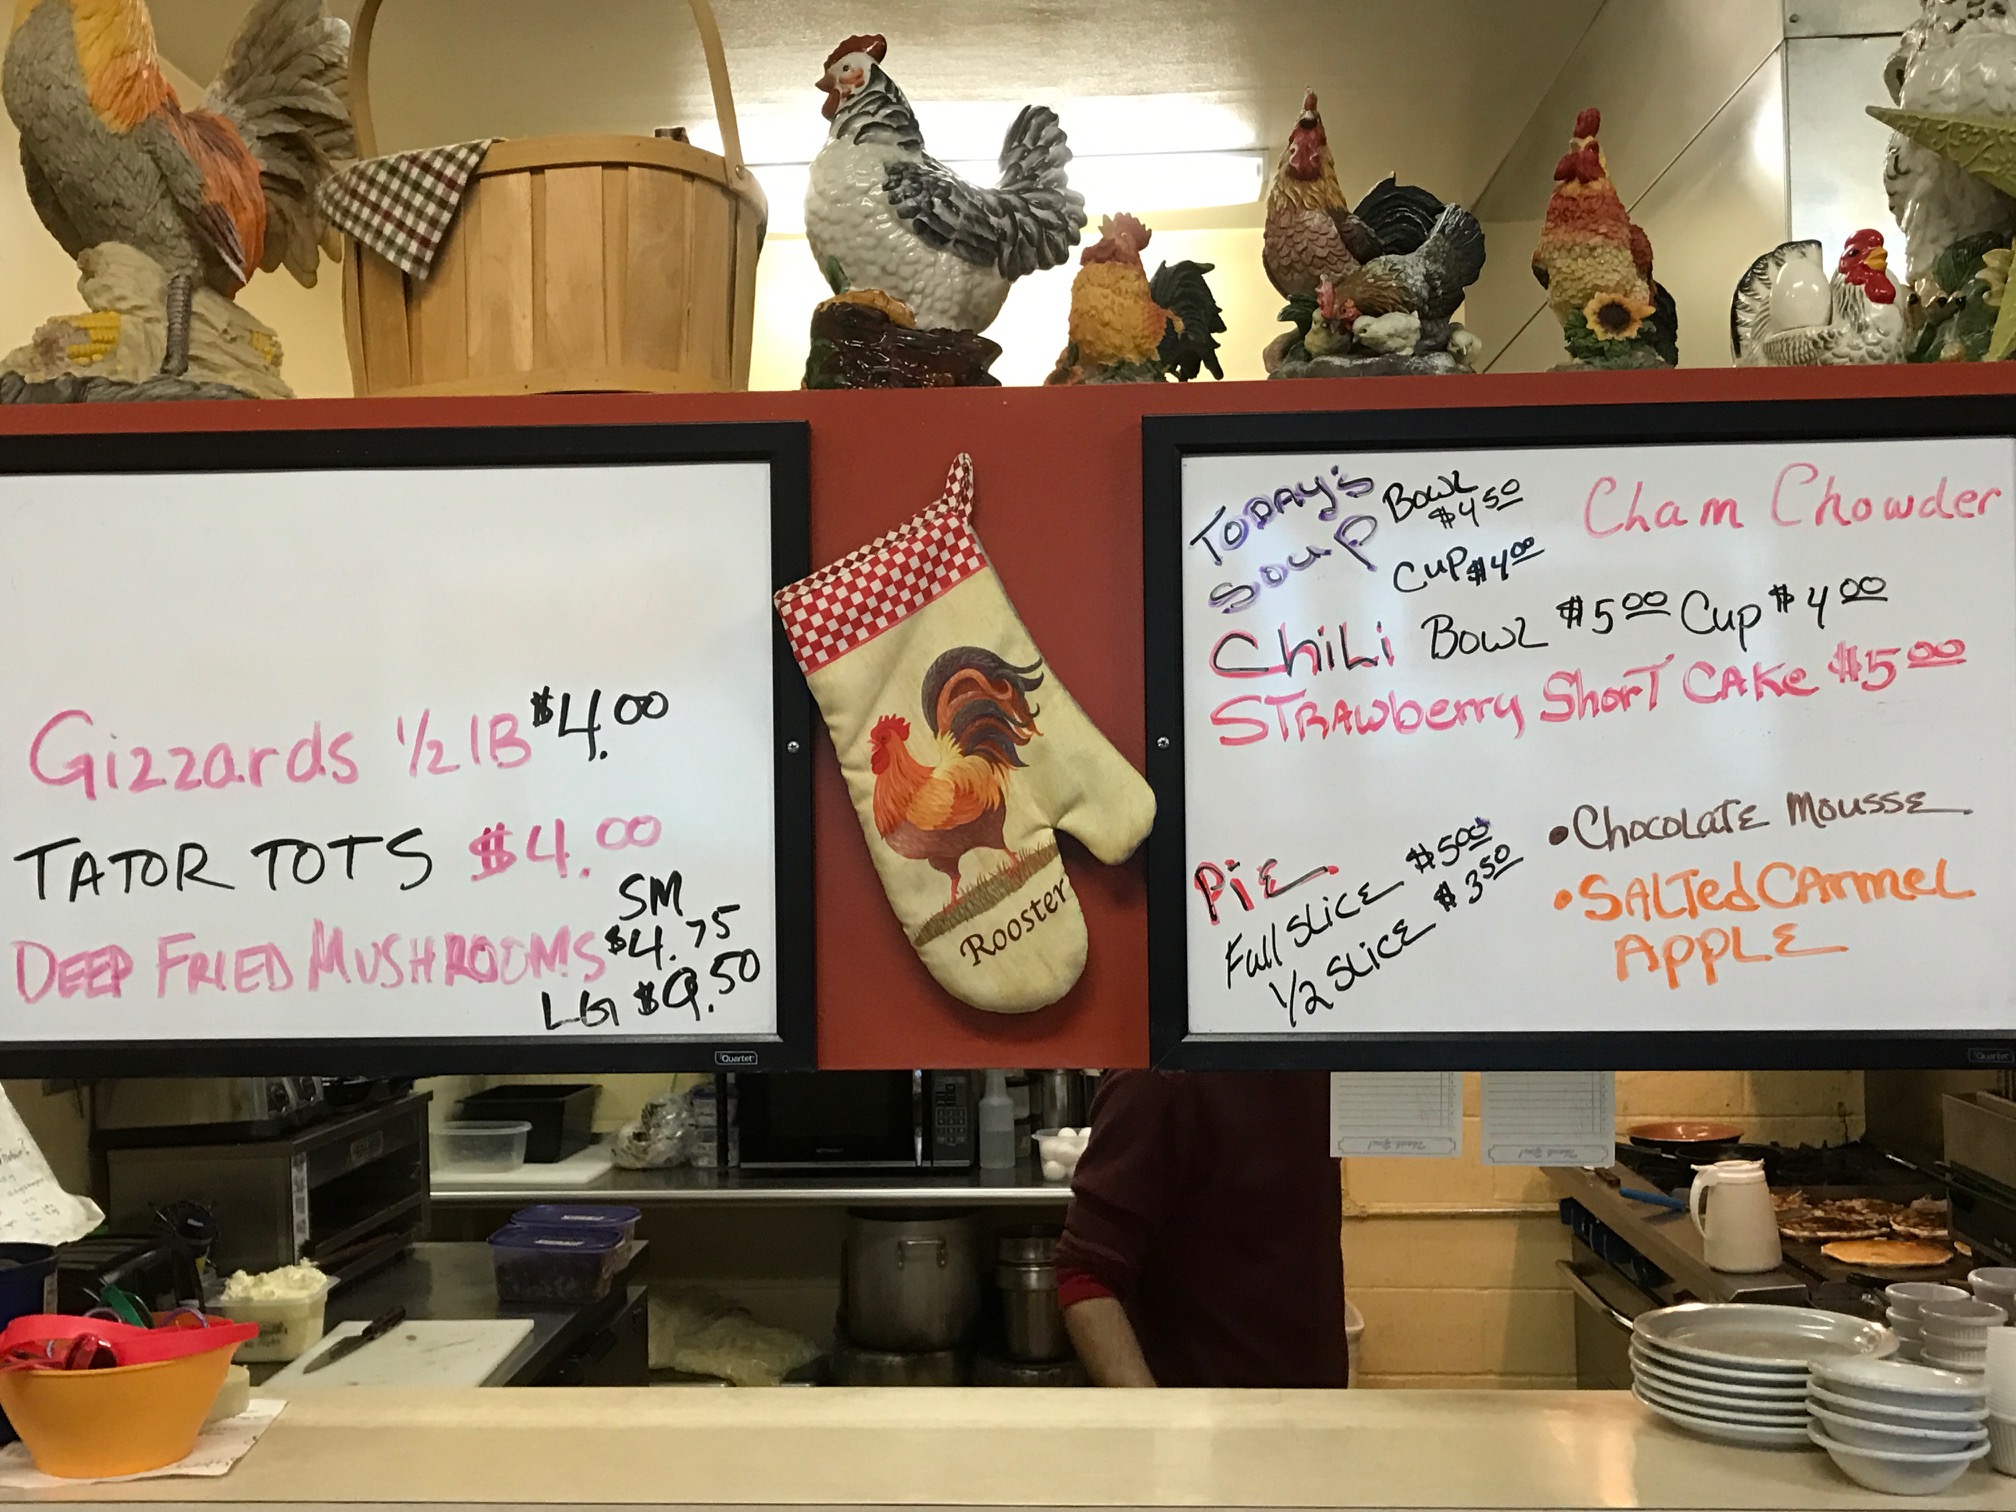 Gizzards 1/2 lB $4.00
TATOR TOTS $4.00
DEEP FRIED MUSHROOMS SM $4.75
LG $9.50
Quartet
Rooster
TODAY'S SOUP
Bowl $4.50
Cup $4.00
Cham Chowder
CHiLi Bowl $5.00 Cup $4.00
STRAwberry ShorT CAKe $5.00
PiE.
Full SLiCE $5.00
1/2 SLiCE $3.50
• Chocolate Mousse
• SALTed CArmeL
APPLE
Quartet
Thank You!
Thank You!